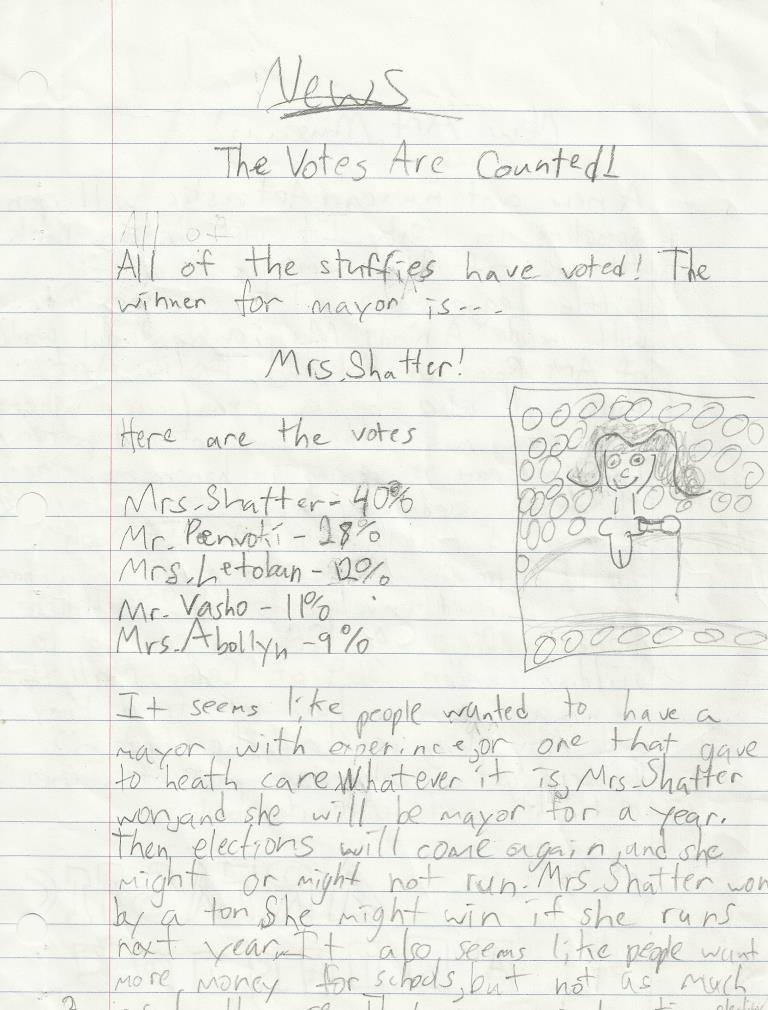 News
The Votes Are Counted!
All of
All of the stuffies have voted! The
winner for mayor is---
Mrs. Shatter!
Here are the votes
Mrs. Shatter - 40%
Mr. Penvoki - 28%
Mrs. Letoban - 12%
Mr. Vasho - 11%
Mrs. Abollyn - 9%
It seems like people wanted to have a
mayor with experince, or one that gave
to heath care. Whatever it is, Mrs. Shatter
won, and she will be mayor for a year.
Then elections will come again, and she
might or might not run. Mrs. Shatter won
by a ton. She might win if she runs
next year. It also seems like people want
more money for schools, but not as much